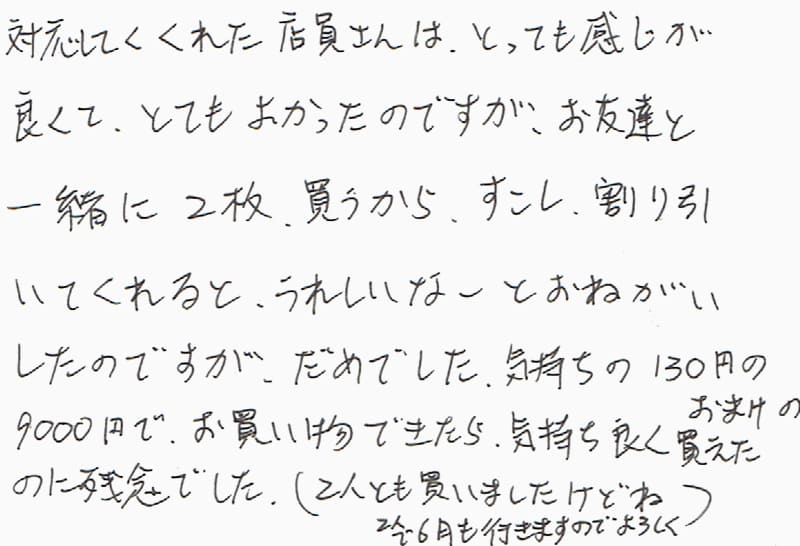 対応してくくれた店員さんは、とっても感じが
良くて、とてもよかったのですが、お友達と
一緒に2枚、買うから、すこし、割り引
いてくれると、うれしいなーとおねがい
したのですが、だめでした、気持ちの130円の
おまけの
9000円で、お買い物できたら、気持ち良く買えた
のに残念でした、(2人とも買いましたけどね)
2人で6月も行きますのでよろしく